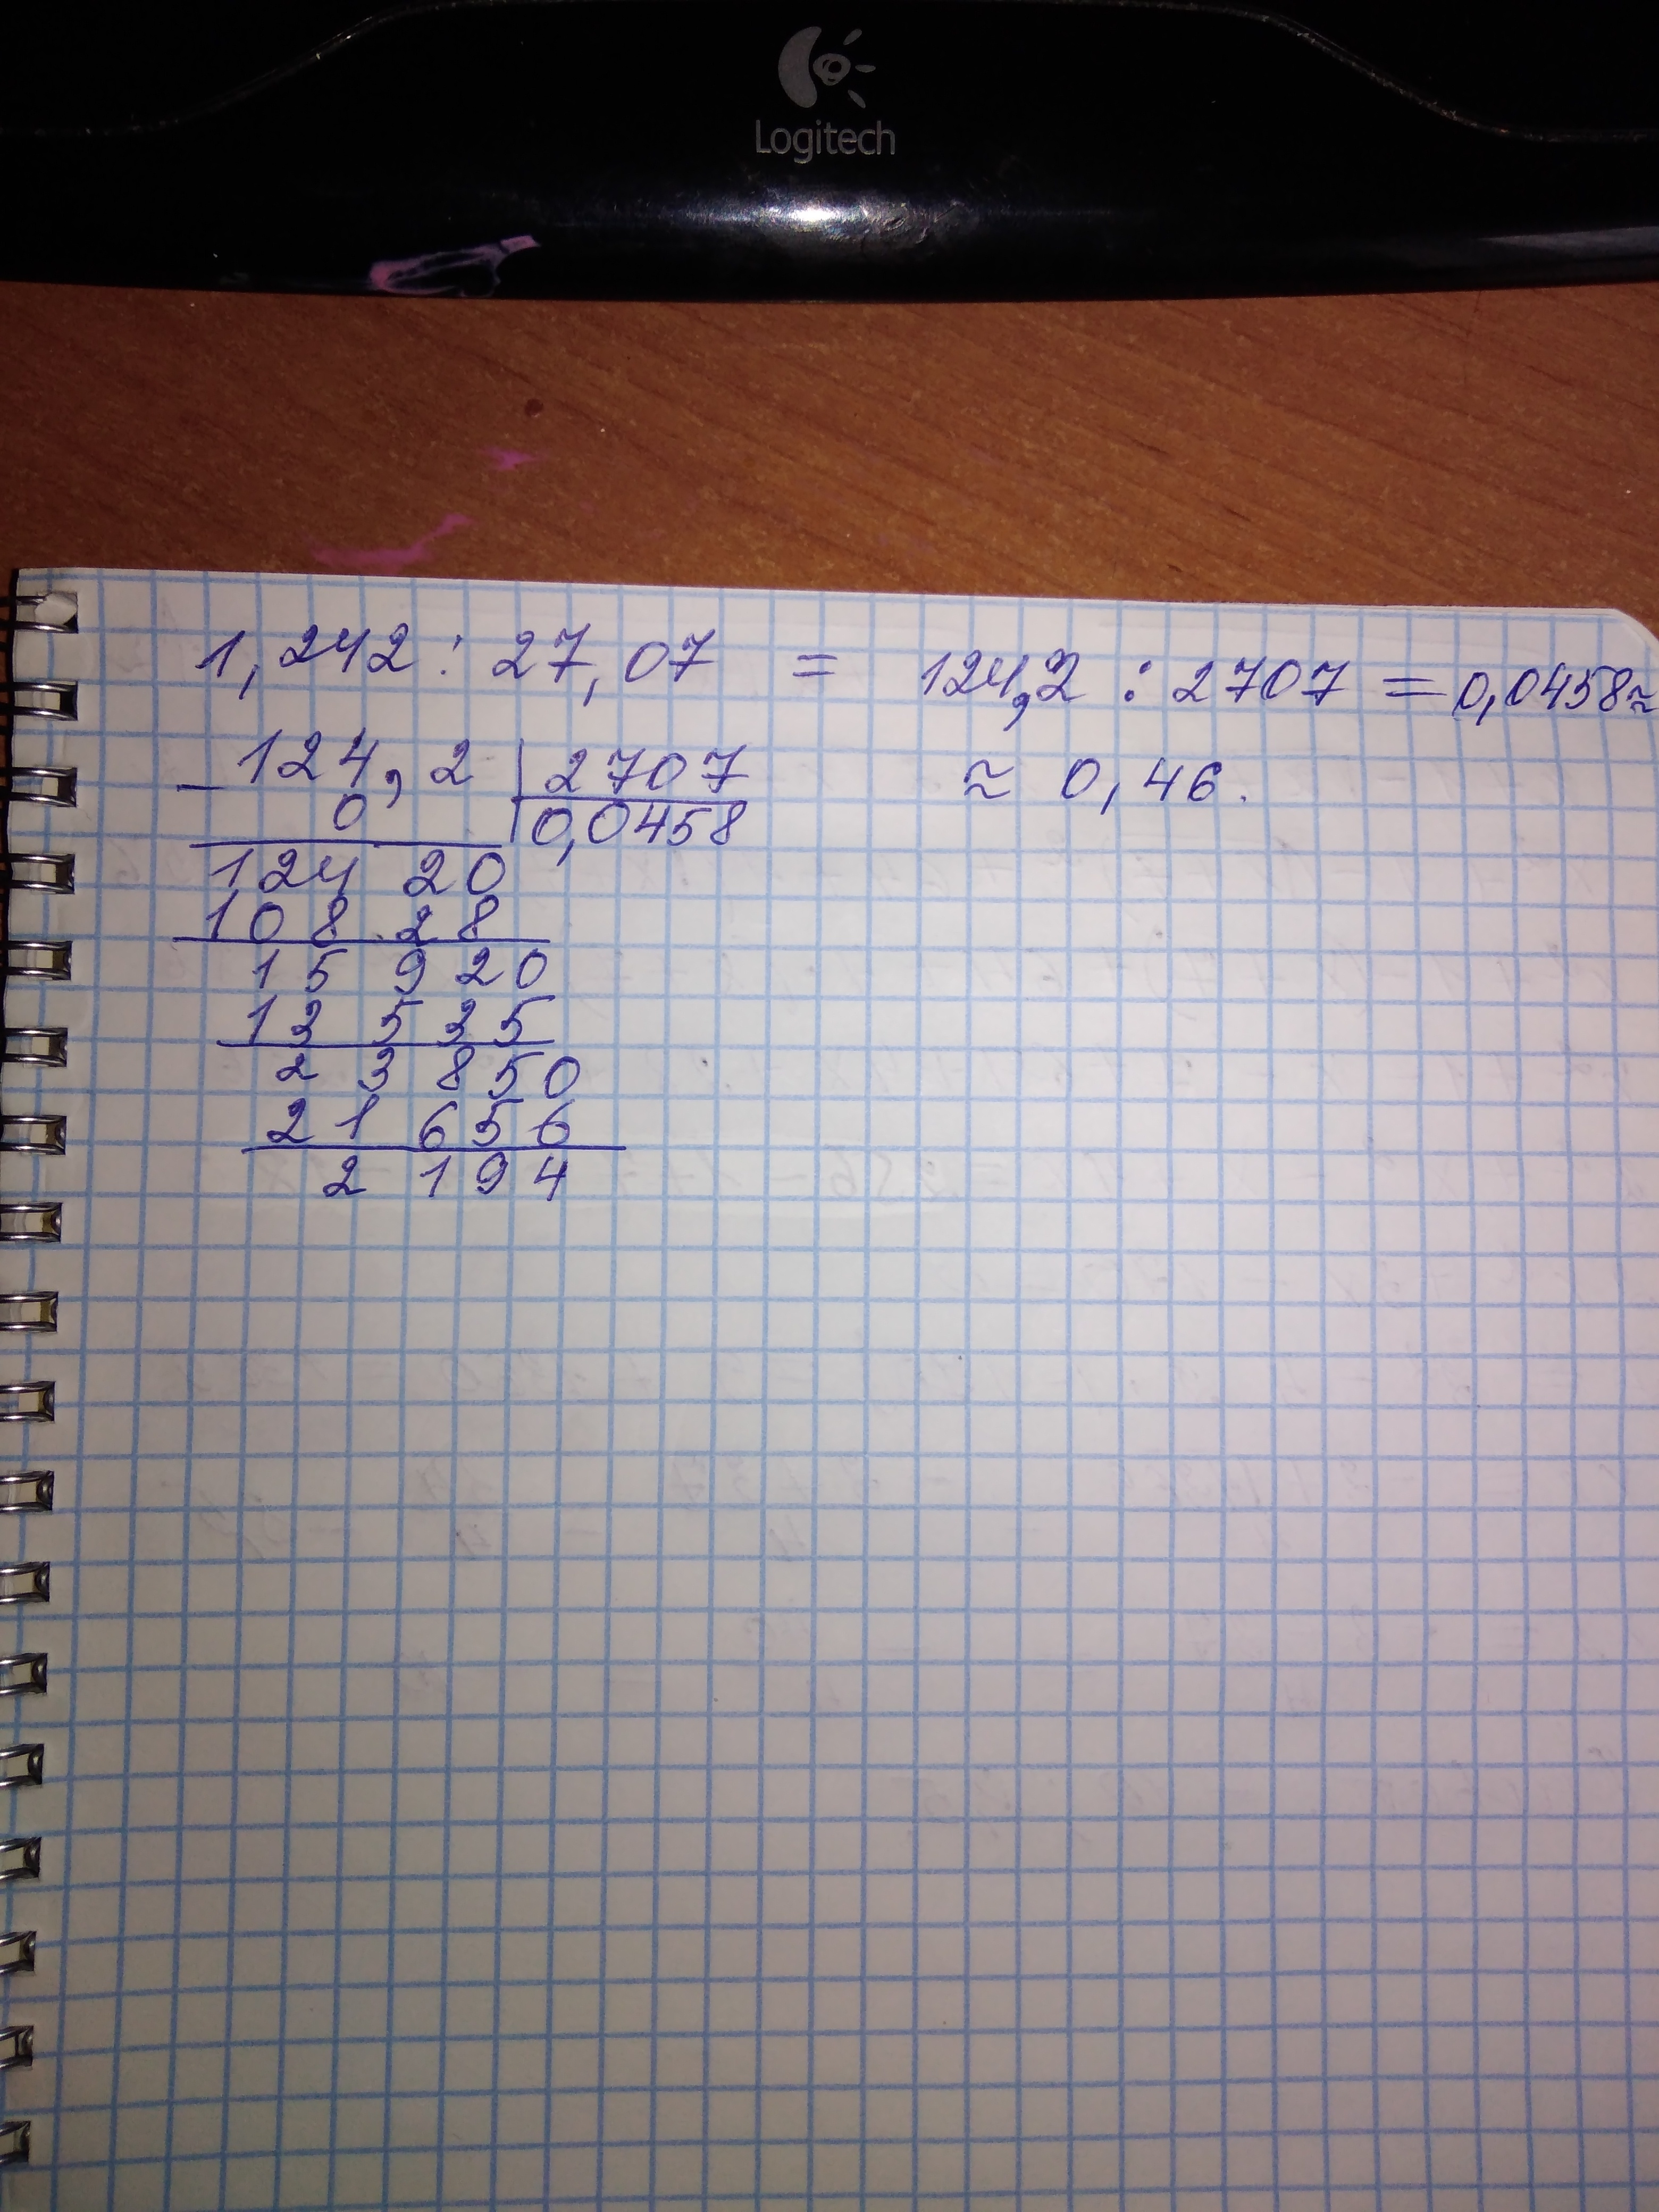 Logitech
1,242 : 27,07 = 124,2 : 2707 = 0,0458≈
≈ 0,46.
– 124,2 | 2707
0 | 0,0458
124 20
108 28
15 920
13 535
23 850
21 656
2 194